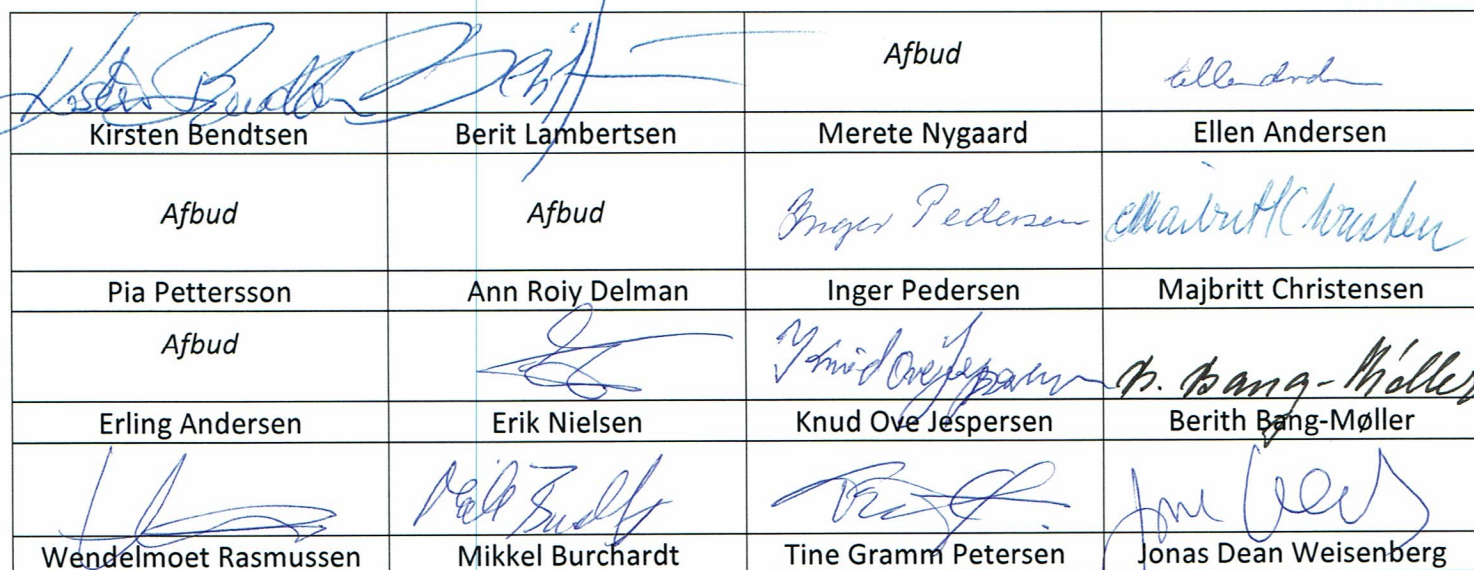 Kirsten Bendtsen Berit Afbud Ellen Andersen
Kirsten Bendtsen Berit Lambertsen Merete Nygaard Ellen Andersen
Afbud Afbud Inger Pedersen Majbritt Christensen
Pia Pettersson Ann Roiy Delman Inger Pedersen Majbritt Christensen
Afbud Knud Ove Jespersen B. Bang-Møller
Erling Andersen Erik Nielsen Knud Ove Jespersen Berith Bang-Møller
Wendelmoet Rasmussen Mikkel Burchardt Tine Gramm Petersen Jonas Dean Weisenberg